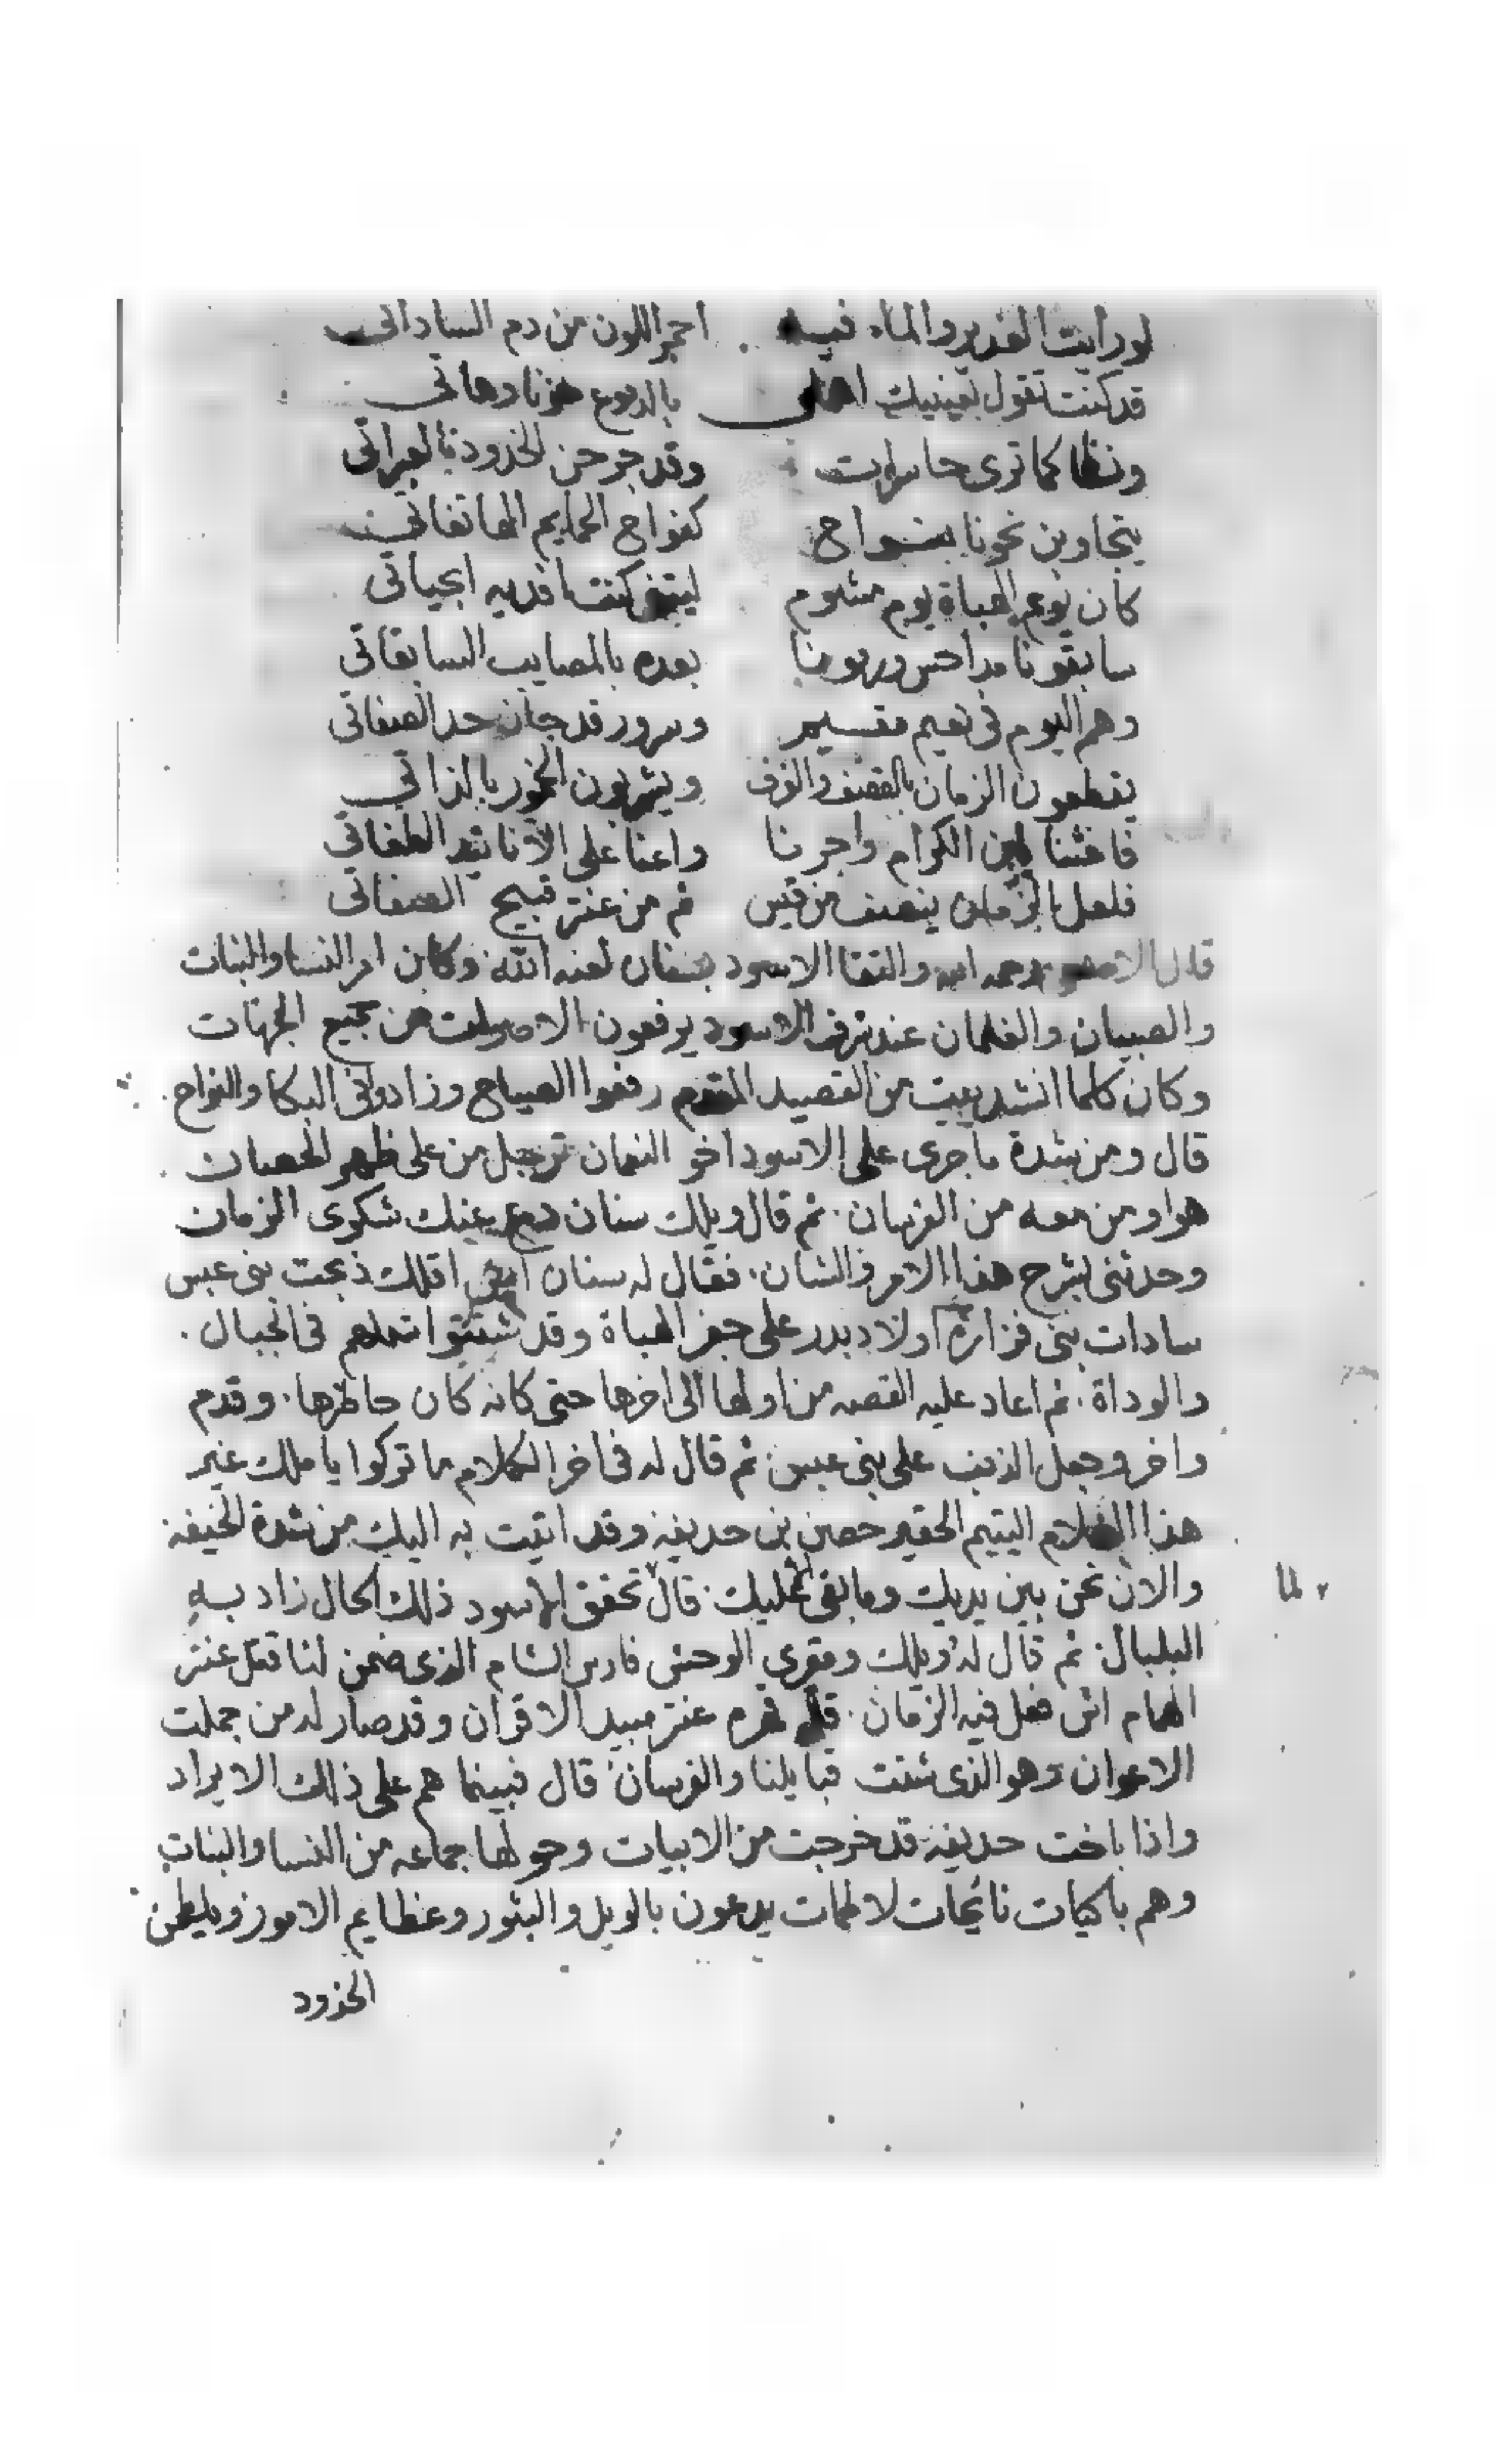 لو رأيت الغدير والماء فيه احمر اللون من دم الساداتى
قد كنت تقول لعينيك اهملى بالدموع هونا دهاتى
ونسانا كما ترى حاسرات وقد جرحن الخدود بالعبراتى
يتجاوبن نحونا بنواح كنواح الحمايم الهاتفاتى
كان يوم الهباة يوم مشوم ليتنى كنت افديه ابحياتى
سابقونا بداحس ورمونا بعده بالمصايب السابقاتى
وهم اليوم فى نعيم مقسيم وسرور قد جاز حد الصفاتى
يقطعون الزمان بالقصف والزف ويشربون الخمور بالذاتى
فاغثنا يابن الكرام واجرنا واعنا على الانا يد الطغاتى
فلعل الزمان ينصف من قيس ثم من عنتر قبيح الصفاتى
قال الاصمعى رحمه الله والتقا الاسود بسنان لعنه الله وكان امر النسا والبنات
والصبيان والغلمان عند ترف الاسود يرفعون الاصوات من جميع الجهات
وكان كلما انشد بيت من القصيد المقدم رفعوا الصياح وزادوا فى البكا والنواح
قال ومن شدة ما جرى على الاسود اخو النعمان ترجل من على ظهر الحصان
هو ومن معه من الفرسان. ثم قال ويلك سنان دع عنك شكوى الزمان
وحدثنى بشرح هذا الامر والشان. فقال له سنان ايش اقلك ذبحت بنى عبس
سادات بنى فزاره اولاد بدر على جفر الهباة وقد شتتوا شملهم فى الجبال.
والوداة. ثم اعاد عليه القصه من اولها الى اخرها حتى كانه كان حاظرها. وقدم
واخر وجعل الذنب على بنى عبس ثم قال له فى اخر الكلام ما تركوا يا ملك غير
هذا الغلام اليتيم الحقير حصن بن حديفه وقد اتيت به اليك من شدة الخيفه
والان نحن بين يديك وما بقى عليك. قال تحقق الاسود ذلك الحال زاد به
لما
البلبال. ثم قال له ويلك ومقرى الوحش فارس الشام الذى ضمن لنا قتل عنتر
الهمام اش فعل فيه الزمان. قال قهره عنتر مبيد الاقران وقد صار له من جملت
الاعوان وهو الذى شتت قبايلنا والفرسان قال فبينما هم على ذلك الايراد
واذا باخت حديفه قد خرجت من الابيات وحولها جماعه من النسا والبنات
وهم باكيات نائحات لاطمات يدعون بالويل والبثور وعظايم الامور ويلطمن
الخدود